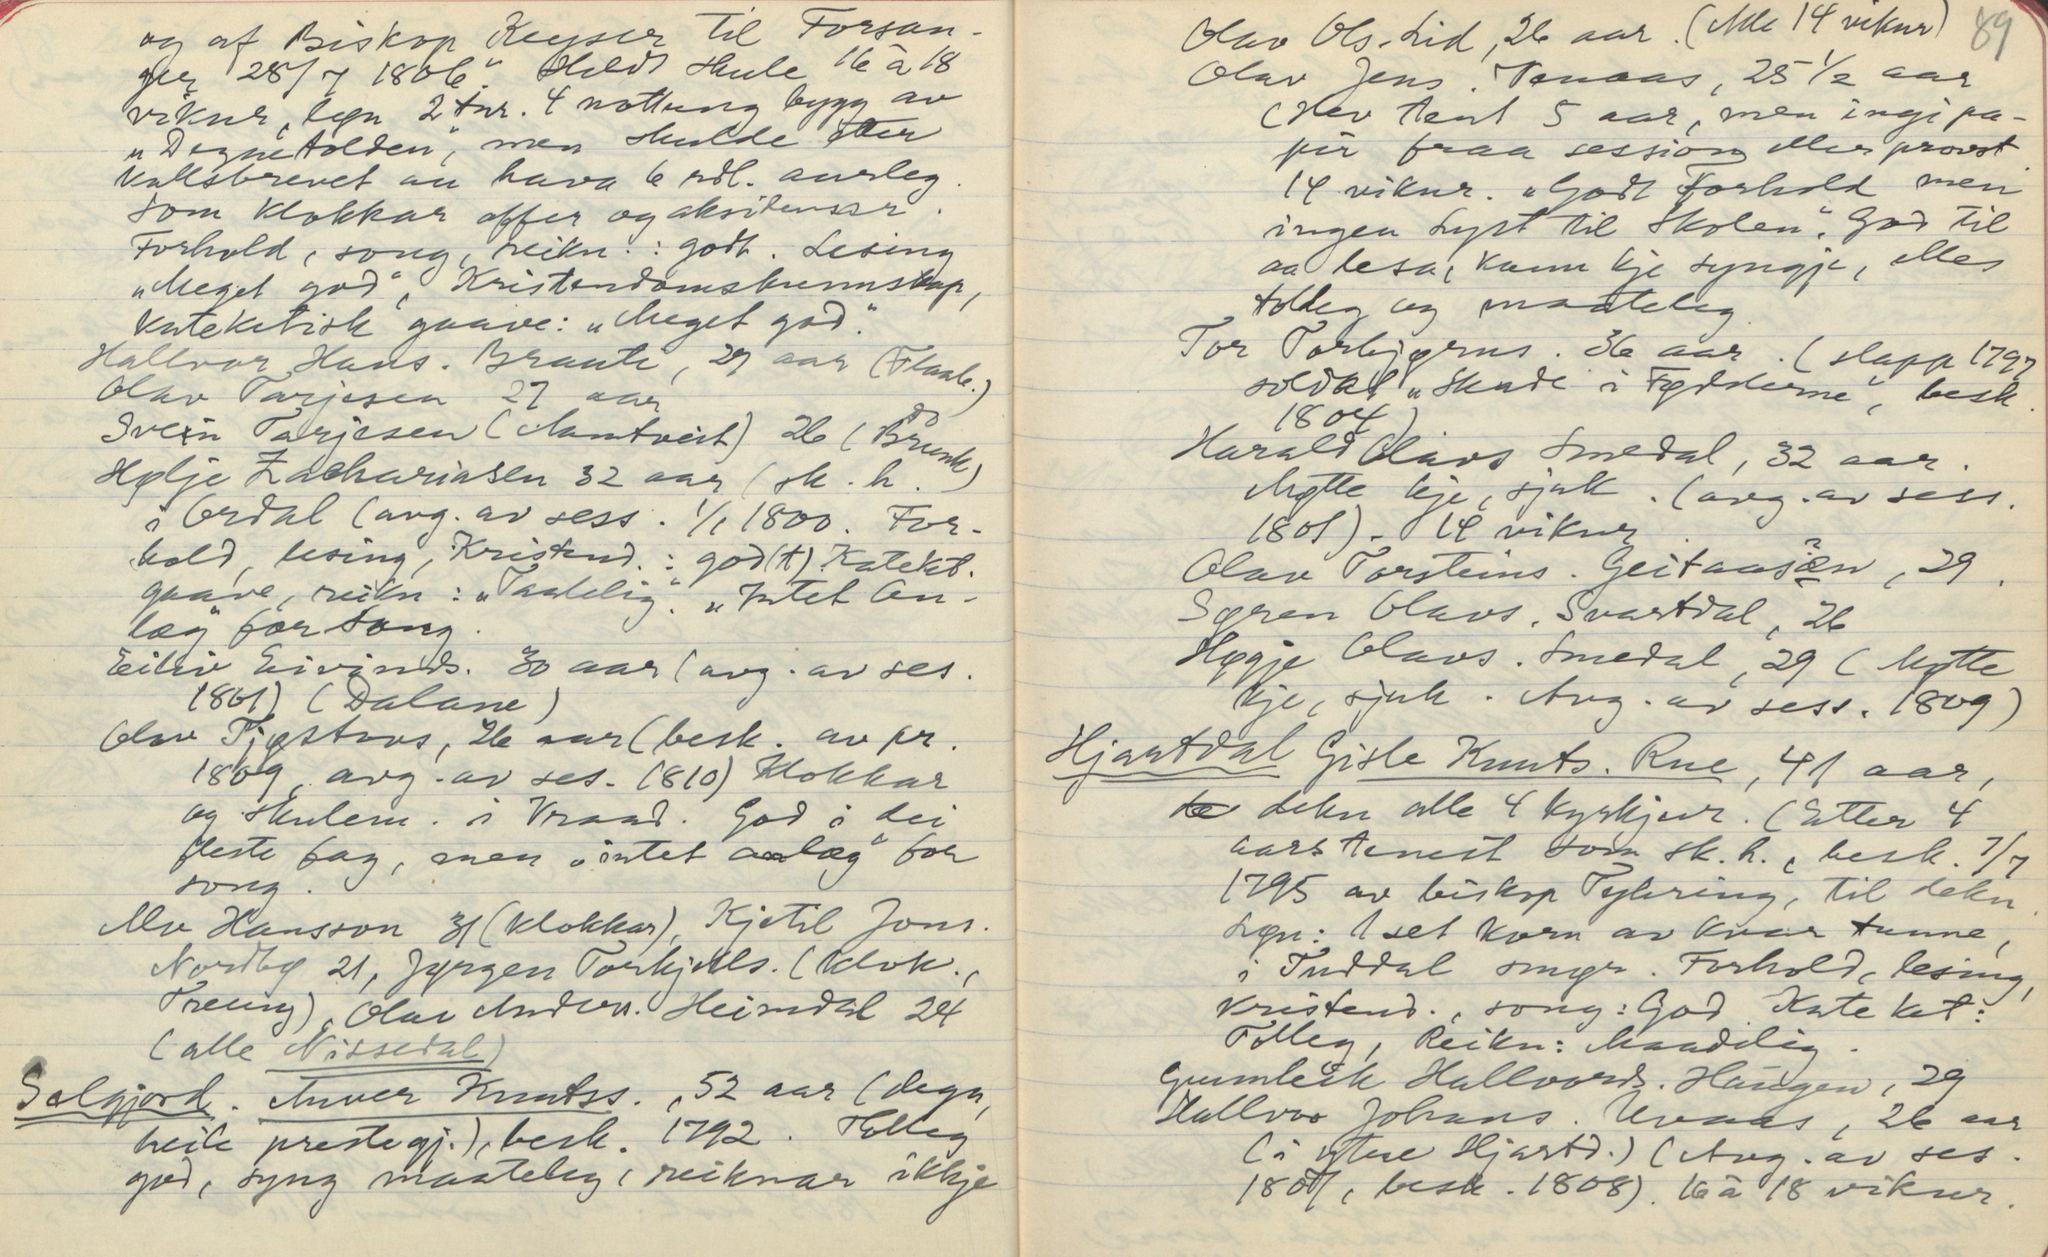 og af Biskop Keyser til Forsan-
ger 28/7 1806". Heldt skule 16 à 18
vikur, løn 2 tnr. 4 nottung bygg av
„Degnetolden", men skulde etter
kallsbrevet au hava 6 rdl. aarleg.
Som klokkar offer og aksidensar.
Forhold, song, reikn.: godt. Lesing
„Meget god", Kristendomskunnskap,
Kateketisk gaave: „Meget god".
Hallvor Hans. Braute, 29 aar (Flaab.)
Olav Tarjesen 27 aar do
Svein Tarjesen (Mamtveit) 26 (Brunk)
Hølje Zachariasen 32 aar (sk. h.
i Ordal (avg. av sess. 1/1 1800. For-
hold, lesing, Kristend.: god(t) Kateket.
gaave, reikn: „Taalelig". „Intet An-
læg" for song.
Eiliv Eivinds. 30 aar (avg. av ses.
1801) (Dalane)
Olav Tjøstovs, 26 aar (besk. av pr.
1809, avg. av ses. 1810) Klokkar
og skulem. i Vraad. God i dei
fleste fag, men „intet anlæg" for
song.
Alv Hansson 31 (klokkar), Kjetil Jons.
Nordbø 21, Jørgen Torkjells. (klok.,
Treung), Olav Anders. Heimdal 24
(alle Nissedal)
Selgjord. Anver Knutss., 52 aar (degn,
heile prestegj.), besk. 1792. Tolleg
god, syng maateleg, reiknar ikkje
89
Olav Ols. Lid, 26 aar. (Alle 14 vikur)
Olav Jens. Nenaas, 25 1/2 aar
(Hev tent 5 aar, men ingi pa-
pir fraa session eller provst.
14 vikur. „Godt Forhold men
ingen Lyst til Skolen". God til
aa lesa, kann kje syngje, elles
tolleg og maateleg
Tor Torbjørns. 36 aar. (slapp 1797
soldat „Skade i Fødderne", besk.
1804)
Harald Olavs Smedal, 32 aar.
Møtte kje, sjuk. (avg. av sess.
1801). 14 vikur.
Olav Torsteins. Geitaasæn?, 29.
Søren Olavs. Svartdal, 26
Høgje Olavs. Smedal, 29 (Møtte
kje, sjuk. Avg. av sess. 1809)
Hjartdal Gisle Knuts. Rue, 41 aar,
dekn alle 4 kyrkjur. (Etter 4
aars tenest som sk. h., besk. 7/7
1795 av biskop Tybring, til dekn.
Løn: 1 set korn av kvar tunne,
i Tuddal smør. Forhold, lesing,
kristend., song: God Kateket:
Tolleg, Reikn: Maadelig.
Gunleik Hallvords. Haugen, 29
Hallvor Johans. Uvaas, 26 aar
(i ytre Hjartd.) (Avg. av ses.
1807, besk. 1808). 16 à 18 vikur.